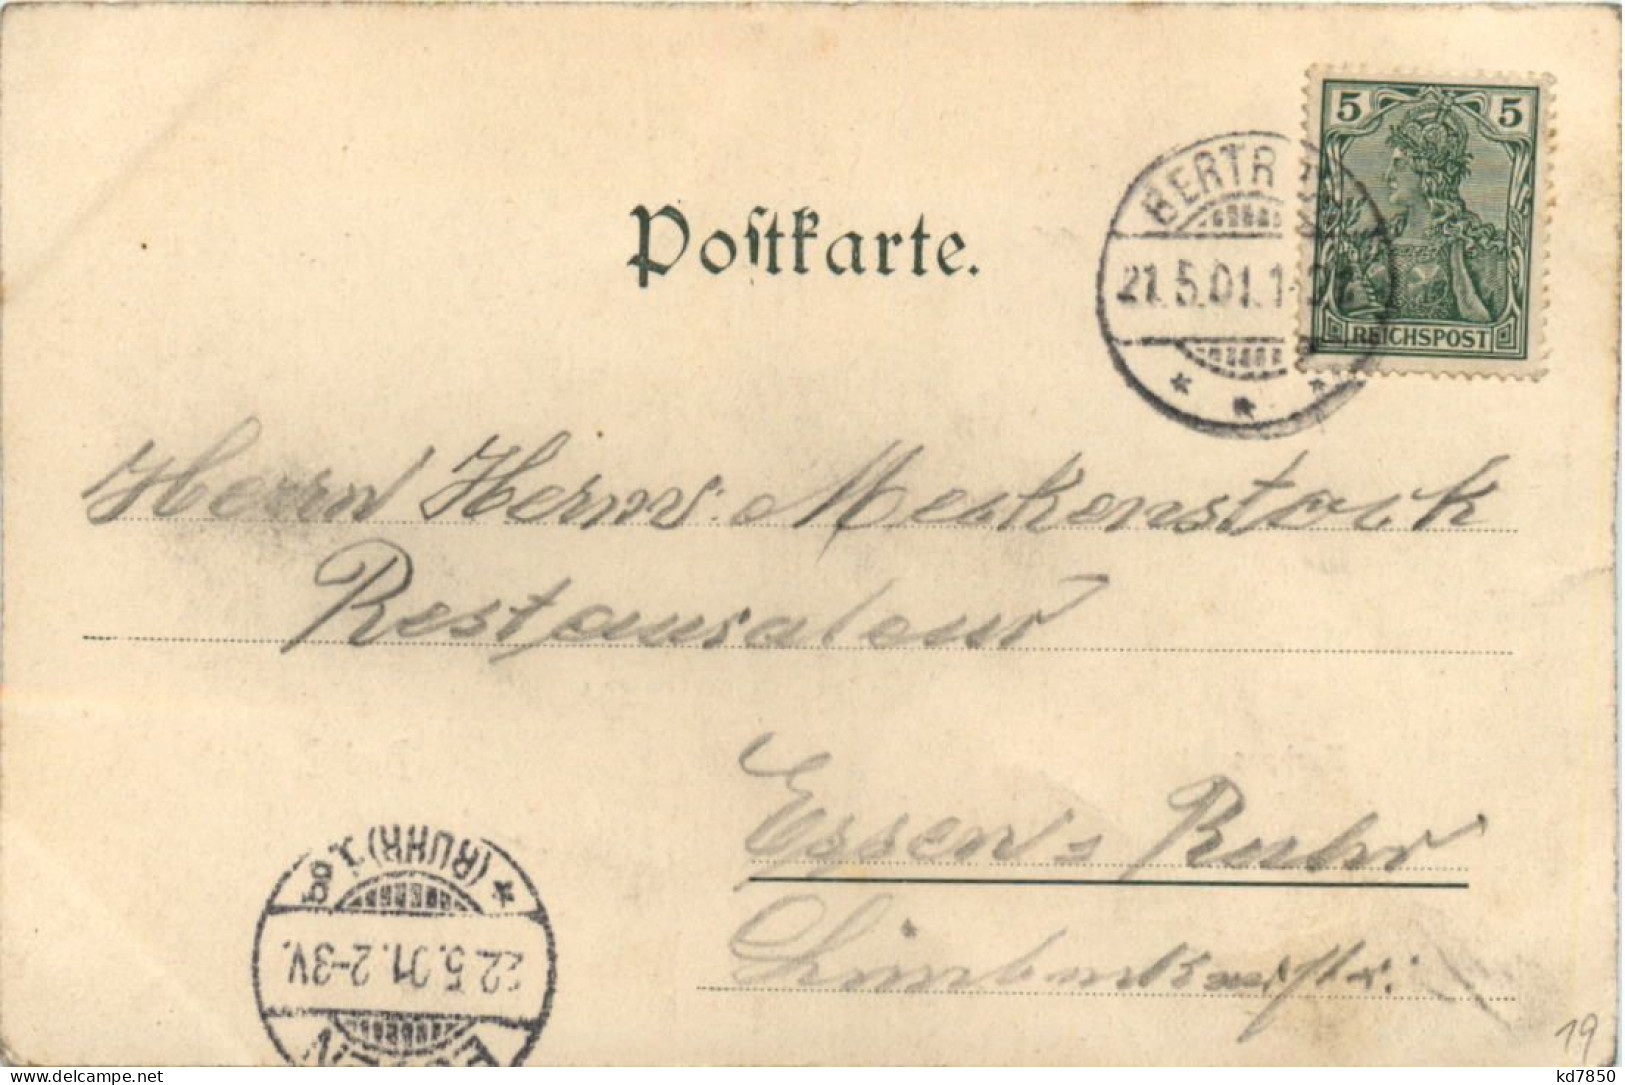 5 5
REICHSPOST
BERTR
21.5.01.1-
Postkarte.
Herrn Herm. Meckenstock
Restaurateur
Essen = Ruhr
* (RUHR) 1. *
22.5.01.2-3V.
ESSEN
19
kd7850